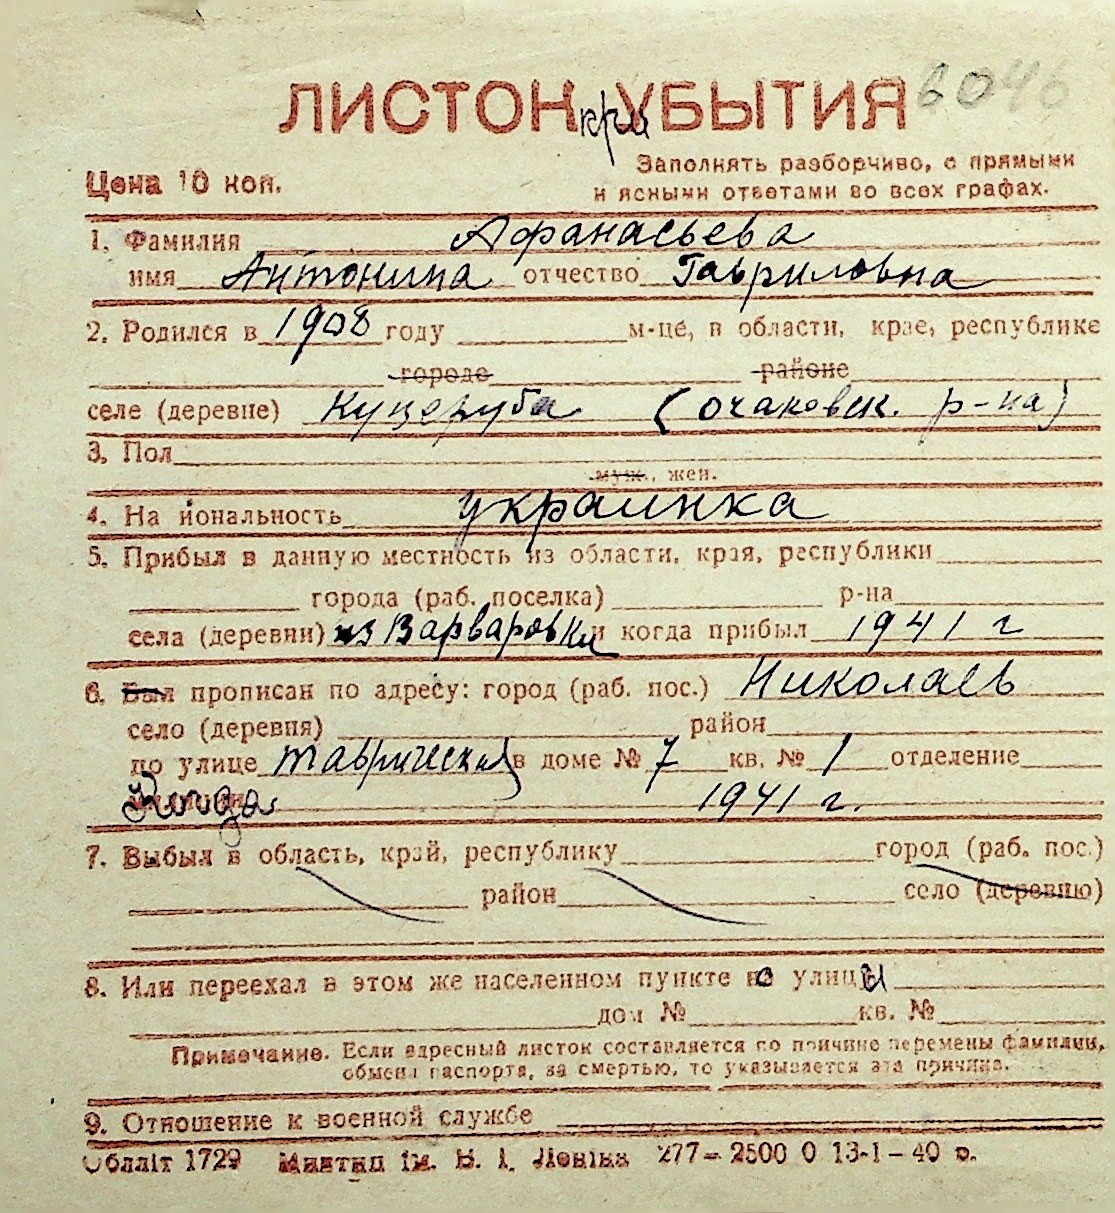 ЛИСТОК при УБЫТИЯ 6046
Цена 10 коп.
Заполнять разборчиво, с прямыми
и ясными ответами во всех графах.
1. Фамилия Афанасьева
имя Антонина отчество Гавриловна
2. Родился в 1908 году м-це, в области, крае, республике
городе районе
селе (деревне) Куцеруба (очаковск. р-на)
3. Пол
муж., жен.
4. На иональность украинка
5. Прибыл в данную местность из области, края, республики
города (раб. поселка) р-на
села (деревни) из Варваровки и когда прибыл 1941 г
6. Был прописан по адресу: город (раб. пос.) Николаев
село (деревня) район
по улице Таврической в доме № 7 кв. № 1 отделение
1941 г.
7. Выбыл в область, край, республику город (раб. пос.)
район село (деревню)
8. Или переехал в этом же населенном пункте по улицы
дом № кв. №
Примечание. Если адресный листок составляется по причине перемены фамилии,
обмена паспорта, за смертью, то указывается эта причина.
9. Отношение к военной службе
Обллiт 1729 Миктип iм. В. I. Ленiна 277 – 2500 0 13-1-40 р.